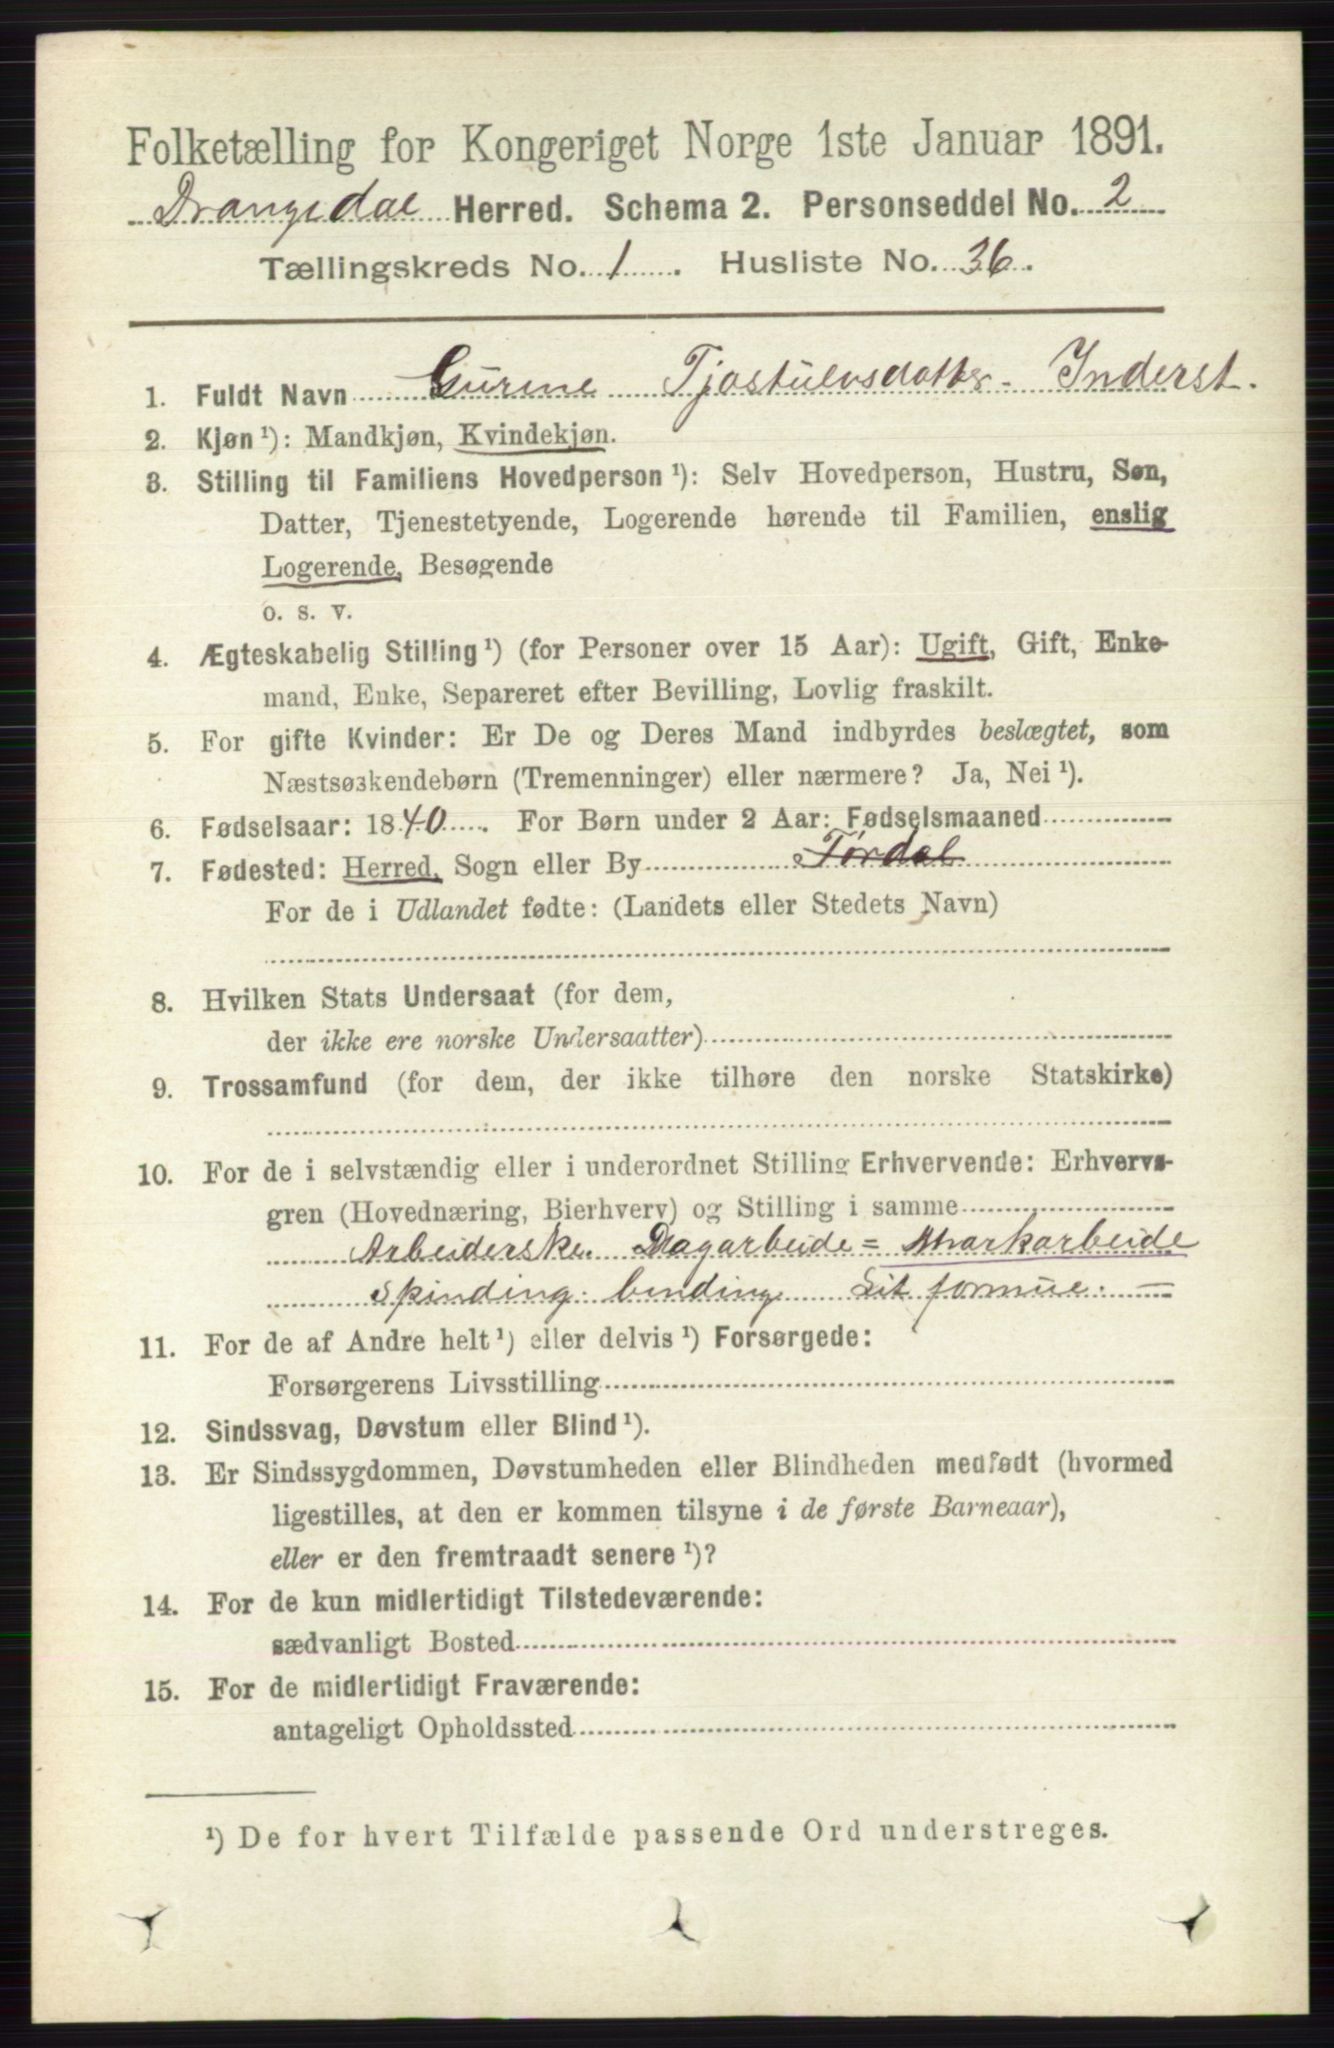 Folketælling for Kongeriget Norge 1ste Januar 1891.
Drangedal Herred. Schema 2. Personseddel No. 2
Tællingskreds No. 1. Husliste No. 36.
1. Fuldt Navn Gurine Tjostulvsdatter Inderst.
2. Kjøn ¹): Mandkjøn, Kvindekjøn.
3. Stilling til Familiens Hovedperson ¹): Selv Hovedperson, Hustru, Søn,
Datter, Tjenestetyende, Logerende hørende til Familien, enslig
Logerende, Besøgende
o. s. v.
4. Ægteskabelig Stilling ¹) (for Personer over 15 Aar): Ugift, Gift, Enke-
mand, Enke, Separeret efter Bevilling, Lovlig fraskilt.
5. For gifte Kvinder: Er De og Deres Mand indbyrdes beslægtet, som
Næstsøskendebørn (Tremenninger) eller nærmere? Ja, Nei ¹).
6. Fødselsaar: 1840. For Børn under 2 Aar: Fødselsmaaned
7. Fødested: Herred, Sogn eller By Tørdal
For de i Udlandet fødte: (Landets eller Stedets Navn)
8. Hvilken Stats Undersaat (for dem,
der ikke ere norske Undersaatter)
9. Trossamfund (for dem, der ikke tilhøre den norske Statskirke)
10. For de i selvstændig eller i underordnet Stilling Erhvervende: Erhvervs-
gren (Hovednæring, Bierhverv) og Stilling i samme
Arbeiderske. Dagarbeide = Markarbeide
Spinding. binding Lit formue. —
11. For de af Andre helt ¹) eller delvis ¹) Forsørgede:
Forsørgerens Livsstilling
12. Sindssvag, Døvstum eller Blind ¹).
13. Er Sindssygdommen, Døvstumheden eller Blindheden medfødt (hvormed
ligestilles, at den er kommen tilsyne i de første Barneaar),
eller er den fremtraadt senere ¹)?
14. For de kun midlertidigt Tilstedeværende:
sædvanligt Bosted
15. For de midlertidigt Fraværende:
antageligt Opholdssted
¹) De for hvert Tilfælde passende Ord understreges.